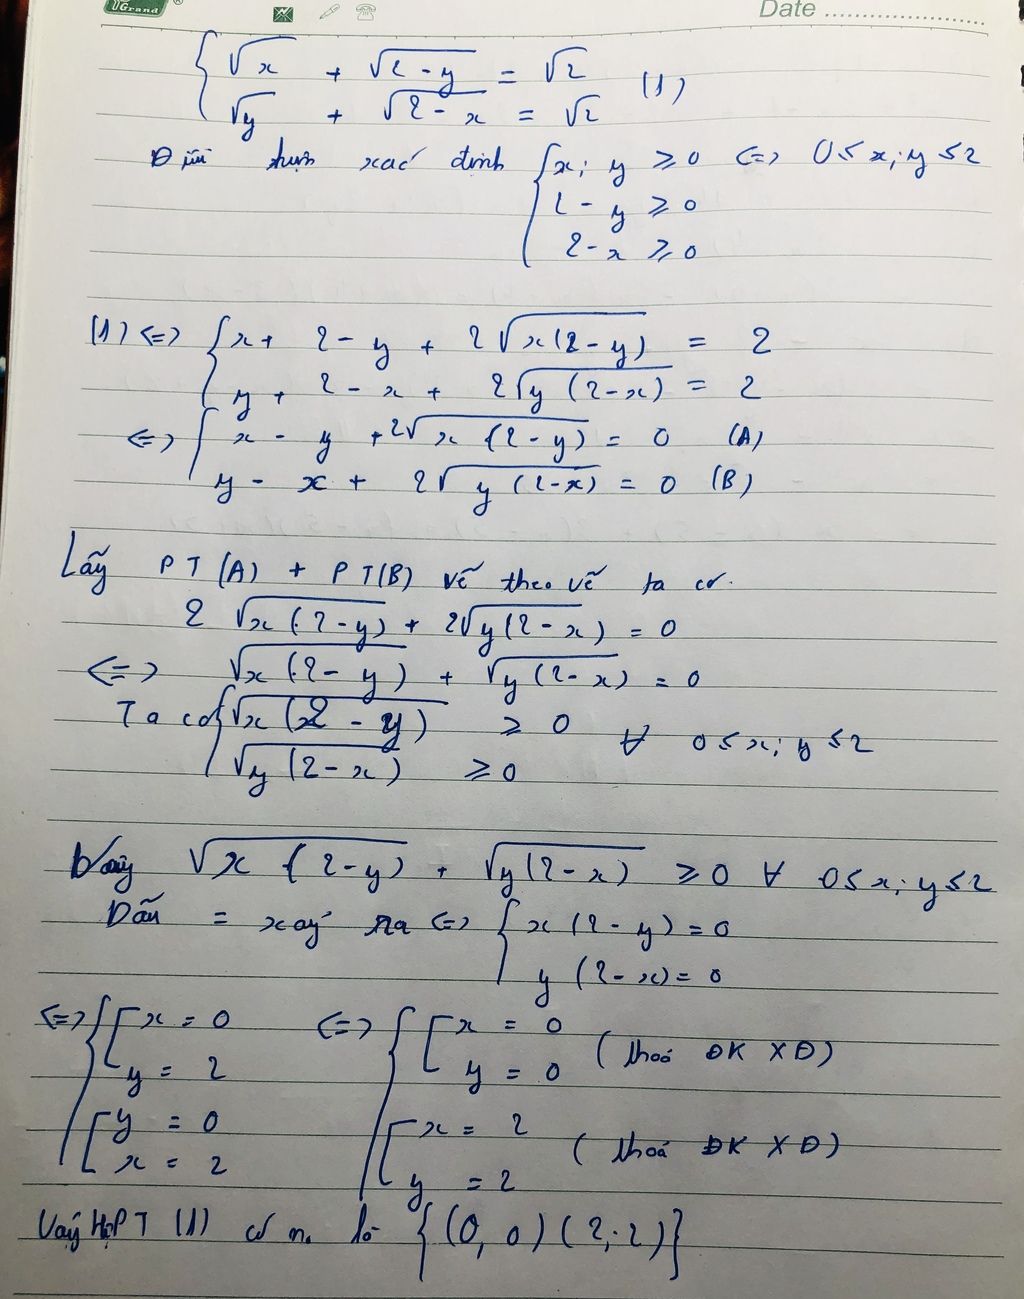 UGrand ®
Date
{ √x + √(2 - y) = √2
{ √y + √(2 - x) = √2 (1)
Điều kiện xác định { x; y ≥ 0 <=> 0 ≤ x; y ≤ 2
2 - y ≥ 0
2 - x ≥ 0
(1) <=> { x + 2 - y + 2√(x(2 - y)) = 2
y + 2 - x + 2√(y(2 - x)) = 2
<=> { x - y + 2√(x(2 - y)) = 0 (A)
y - x + 2√(y(2 - x)) = 0 (B)
Lấy PT(A) + PT(B) vế theo vế ta có
2√(x(2 - y)) + 2√(y(2 - x)) = 0
<=> √(x(2 - y)) + √(y(2 - x)) = 0
Ta có { √(x(2 - y)) ≥ 0
√(y(2 - x)) ≥ 0 ∀ 0 ≤ x; y ≤ 2
Vậy √(x(2 - y)) + √(y(2 - x)) ≥ 0 ∀ 0 ≤ x; y ≤ 2
Dấu = xảy ra <=> { x(2 - y) = 0
y(2 - x) = 0
<=> { [ x = 0 <=> { [ x = 0
y = 2 y = 0 (thoả ĐKXĐ)
[ y = 0 [ x = 2
x = 2 y = 2 (thoả ĐKXĐ)
Vậy HPT (1) có n. là {(0, 0) (2; 2)}